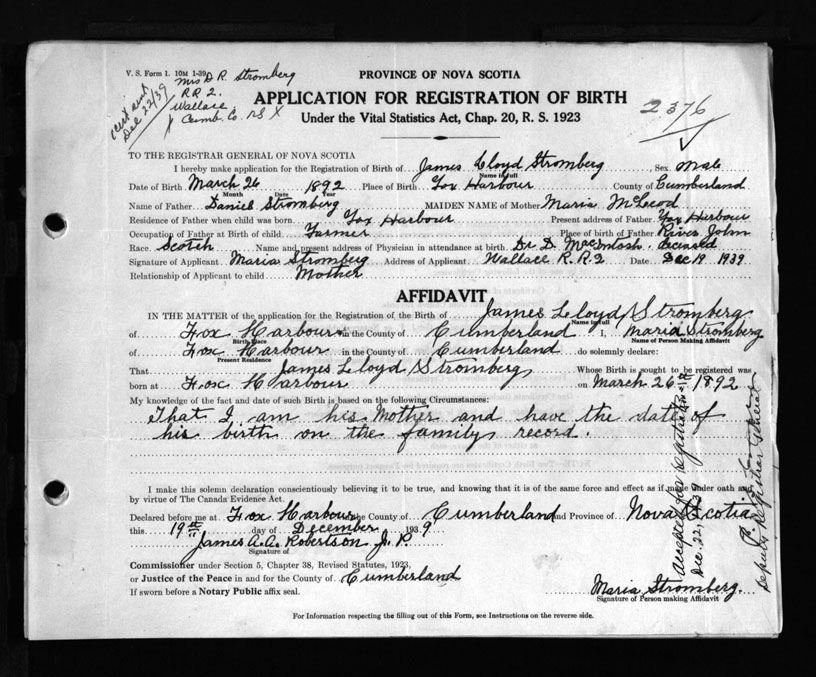 V. S. Form 1. 10M 1-39
Mrs D R. Stromberg
R R 2.
Wallace
Cumb. Co. NS X
cert sent
Dec 22/39
PROVINCE OF NOVA SCOTIA
APPLICATION FOR REGISTRATION OF BIRTH
Under the Vital Statistics Act, Chap. 20, R. S. 1923
2376
TO THE REGISTRAR GENERAL OF NOVA SCOTIA
I hereby make application for the Registration of Birth of James Lloyd Stromberg Sex Male
Name in full
Date of Birth March 26 1892 Place of Birth Fox Harbour County of Cumberland
Month Date Year
Name of Father Daniel Stromberg MAIDEN NAME of Mother Maria McLeod
Residence of Father when child was born Fox Harbour Present address of Father Fox Harbour
Occupation of Father at Birth of child Farmer Place of birth of Father River John
Race. Scotch Name and present address of Physician in attendance at birth. Dr. D. MacIntosh. deceased
Signature of Applicant Maria Stromberg Address of Applicant Wallace R. R. 2 Date Dec 19 1939
Relationship of Applicant to child Mother
AFFIDAVIT
IN THE MATTER of the application for the Registration of the Birth of James Lloyd Stromberg
Name in full
of Fox Harbour in the County of Cumberland I, Maria Stromberg
Birth Place Name of Person Making Affidavit
of Fox Harbour in the County of Cumberland do solemnly declare:
Present Residence
That James Lloyd Stromberg Whose Birth is sought to be registered was
born at Fox Harbour on March 26th 1892
My knowledge of the fact and date of such Birth is based on the following Circumstances:
That I am his Mother and have the date of
his birth on the family record.
I make this solemn declaration conscientiously believing it to be true, and knowing that it is of the same force and effect as if made under oath and
by virtue of The Canada Evidence Act.
Declared before me at Fox Harbour in the County of Cumberland and Province of Nova Scotia
this 19th day of December 1939
James A. A. Robertson J. P.
Signature of
Commissioner under Section 5, Chapter 38, Revised Statutes, 1923,
or Justice of the Peace in and for the County of Cumberland
If sworn before a Notary Public affix seal.
Maria Stromberg.
Signature of Person making Affidavit
For Information respecting the filling out of this Form, see Instructions on the reverse side.
Accepted for registration
Dec. 22, 1939
Deputy Registrar General